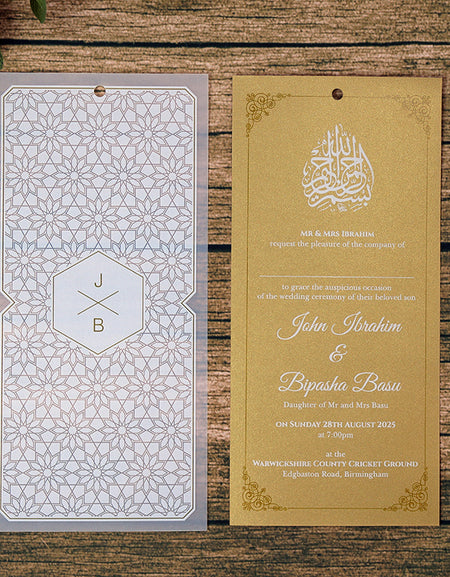 J
B
بسم الله الرحمن الرحيم
MR & MRS IBRAHIM
request the pleasure of the company of
to grace the auspicious occasion
of the wedding ceremony of their beloved son
John Ibrahim
&
Bipasha Basu
Daughter of Mr and Mrs Basu
ON SUNDAY 28TH AUGUST 2025
at 7:00pm
at the
WARWICKSHIRE COUNTY CRICKET GROUND
Edgbaston Road, Birmingham